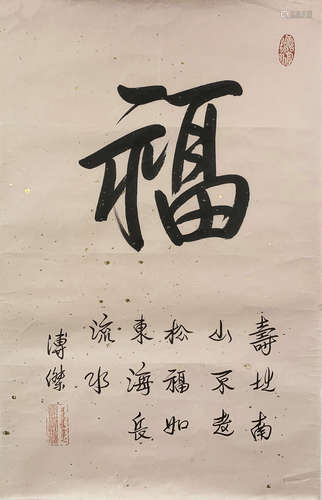 福
壽比南
山不老
松福如
東海長
流水
溥傑